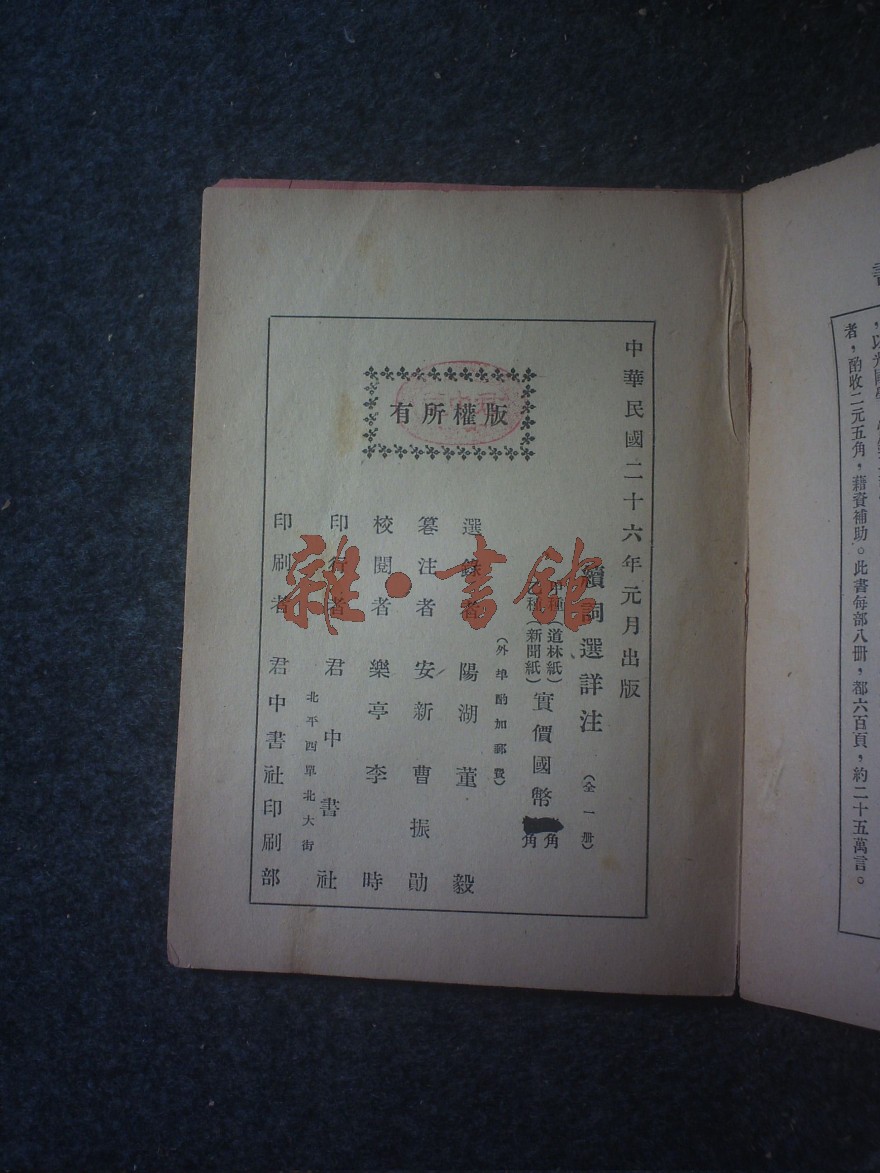 中華民國二十六年元月出版
續詞選詳注（全一册）
甲種（道林紙）
乙種（新聞紙）
實價國幣
角
角
（外埠酌加郵費）
版權所有
選錄者　陽湖董毅
篹注者　安新曹振勛
校閱者　樂亭李時
印行者　君中書社
北平四單北大街
印刷者　君中書社印刷部
雜·書館
者，酌收二元五角，藉資補助。此書每部八冊，都六百頁，約二十五萬言。